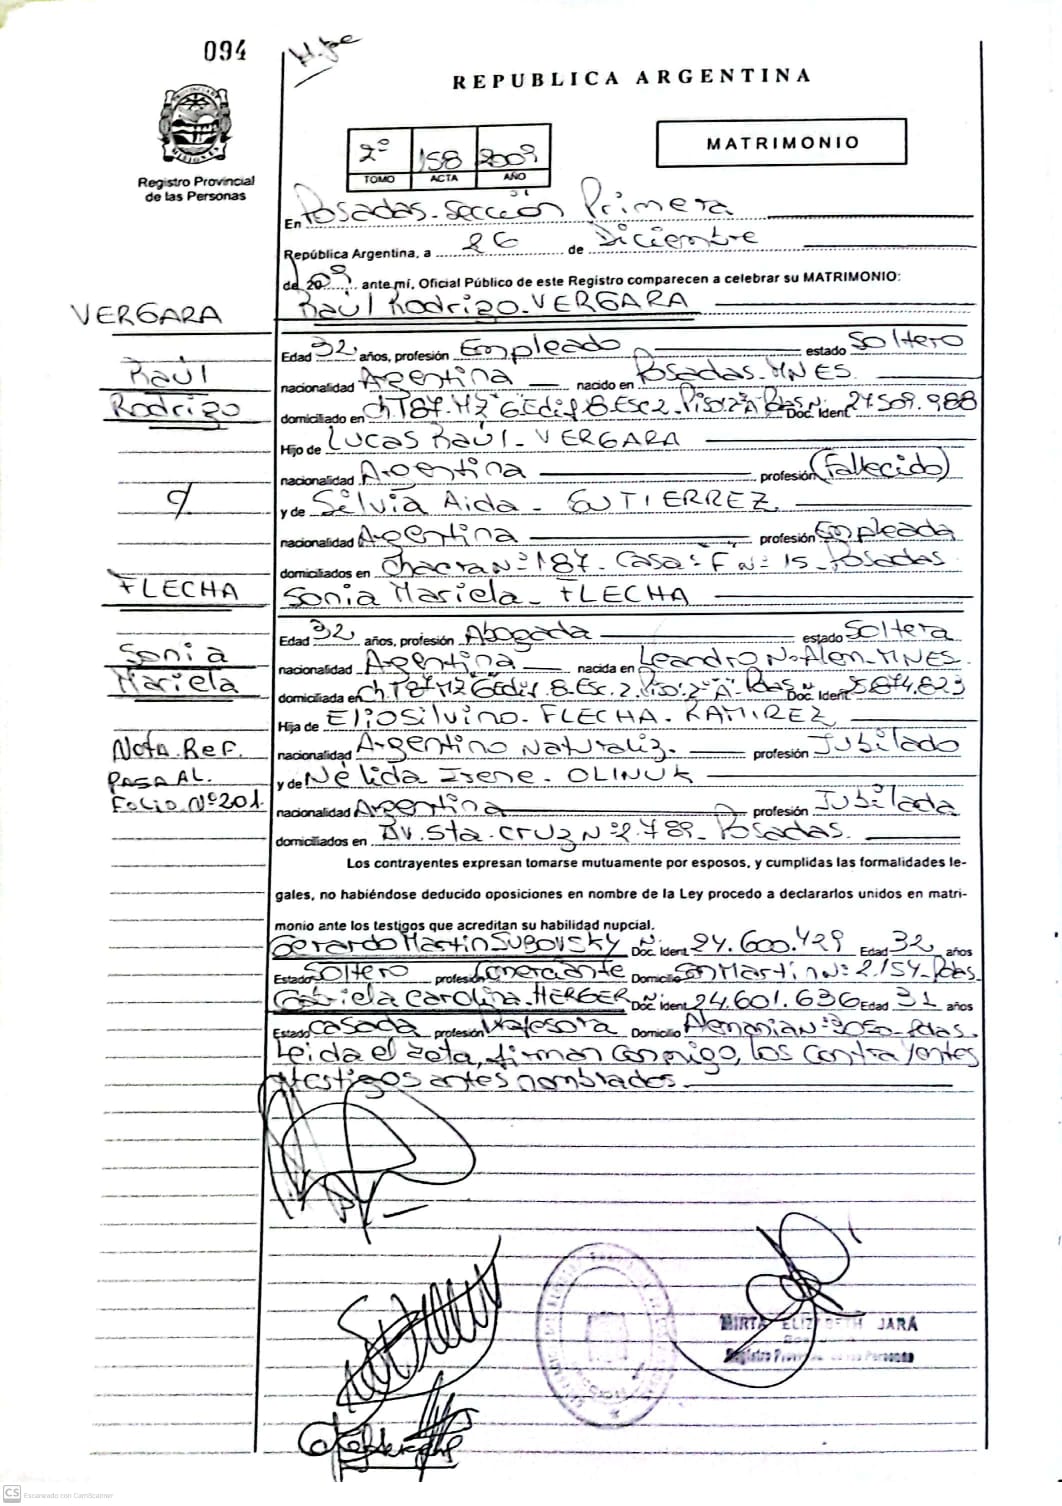 094
REPUBLICA ARGENTINA
MATRIMONIO
2º 158 2009
TOMO ACTA AÑO
Registro Provincial
de las Personas
En Posadas - Sección Primera
República Argentina, a 26 de Diciembre
de 2009 ante mí, Oficial Público de este Registro comparecen a celebrar su MATRIMONIO:
VERGARA
Raúl
Rodrigo
Raúl Rodrigo - VERGARA
Edad 32 años, profesión Empleado estado Soltero
nacionalidad Argentina nacido en Posadas - MNES.
domiciliado en Ch 187. Mz 6 Edif. 8. Esc 2. Piso: 2º A - Pdas Doc. Ident. 27.509.988
Hijo de LUCAS RAÚL - VERGARA
nacionalidad Argentina profesión (Fallecido)
y de Silvia Aida - GUTIERREZ
nacionalidad Argentina profesión Empleada
domiciliados en Chacra Nº 187 - Casa: F Nº 15 - Posadas
c/
FLECHA
Sonia
Mariela
Sonia Mariela - FLECHA
Edad 32 años, profesión Abogada estado Soltera
nacionalidad Argentina nacida en Leandro N. Alem - MNES.
domiciliada en Ch 187 Mz 6 Edif. 8. Esc. 2. Piso: 2º "A" - Pdas Doc. Ident. 25.874.823
Hija de Elio Silvino - FLECHA - RAMIREZ
nacionalidad Argentino Naturaliz. profesión Jubilado
y de Nélida Irene - OLINUK
nacionalidad Argentina profesión Jubilada
domiciliados en AV. Sta. Cruz Nº 2.789 - Posadas.
Nota Ref.
PASA AL
Folio Nº 201.
Los contrayentes expresan tomarse mutuamente por esposos, y cumplidas las formalidades le-
gales, no habiéndose deducido oposiciones en nombre de la Ley procedo a declararlos unidos en matri-
monio ante los testigos que acreditan su habilidad nupcial.
Gerardo Martin SUBOVSKY Doc. Ident. 24.600.429 Edad 32 años
Estado Soltero profesión Comerciante Domicilio San Martin Nº 2.154 - Pdas.
Gabriela Carolina - HERGER Doc. Ident. 24.601.636 Edad 31 años
Estado Casada profesión Profesora Domicilio Alemania Nº 3050 - Pdas.
Leida el acta, firman conmigo, los contrayentes
y testigos antes nombrados.
MIRTA ELIZABETH JARA
Registro Provincial de las Personas
CS Escaneado con CamScanner